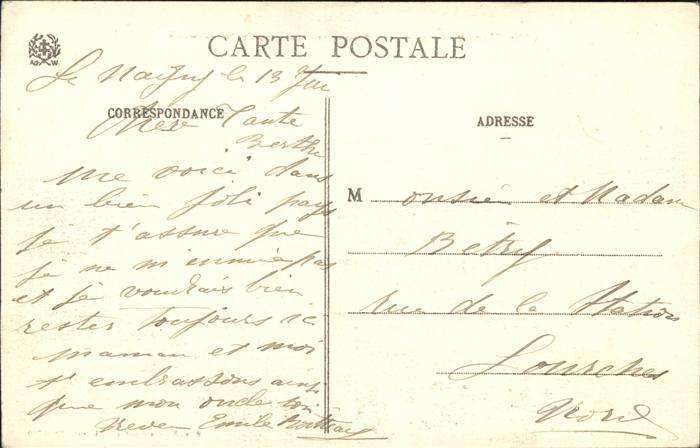 CARTE POSTALE
le 13 Juin
CORRESPONDANCE
Chère Tante
Berthe
me voici dans
un bien joli pays
je t'assure que
je ne m'ennuie pas
et je voudrais bien
rester toujours ici
maman et moi
t'embrassons ainsi
que mon oncle ton
neveu Emile
ADRESSE
Monsieur et Madame
Bétry
rue de la Station
Lourches
Nord